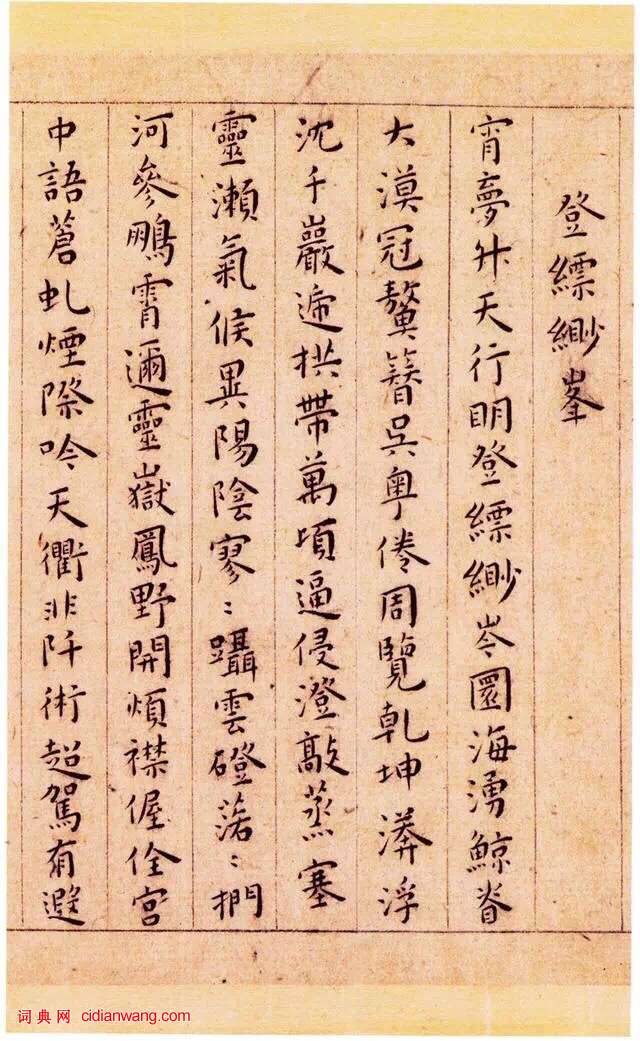 登縹緲峯
宵夢升天行明登縹緲岑圜海湧鯨脊
大漠冠鼇簪吳粵倦周覽乾坤漭浮
沈千巖遞拱帶萬頃逼侵澄蒸塞
靈瀨氣候異陽陰寥:躡雲磴落:捫
河參鵬霄邇靈嶽鳳野開煩襟偓佺宮
中語蒼虬煙際吟天衢非阡術超駕有遐
词典网 cidianwang.com